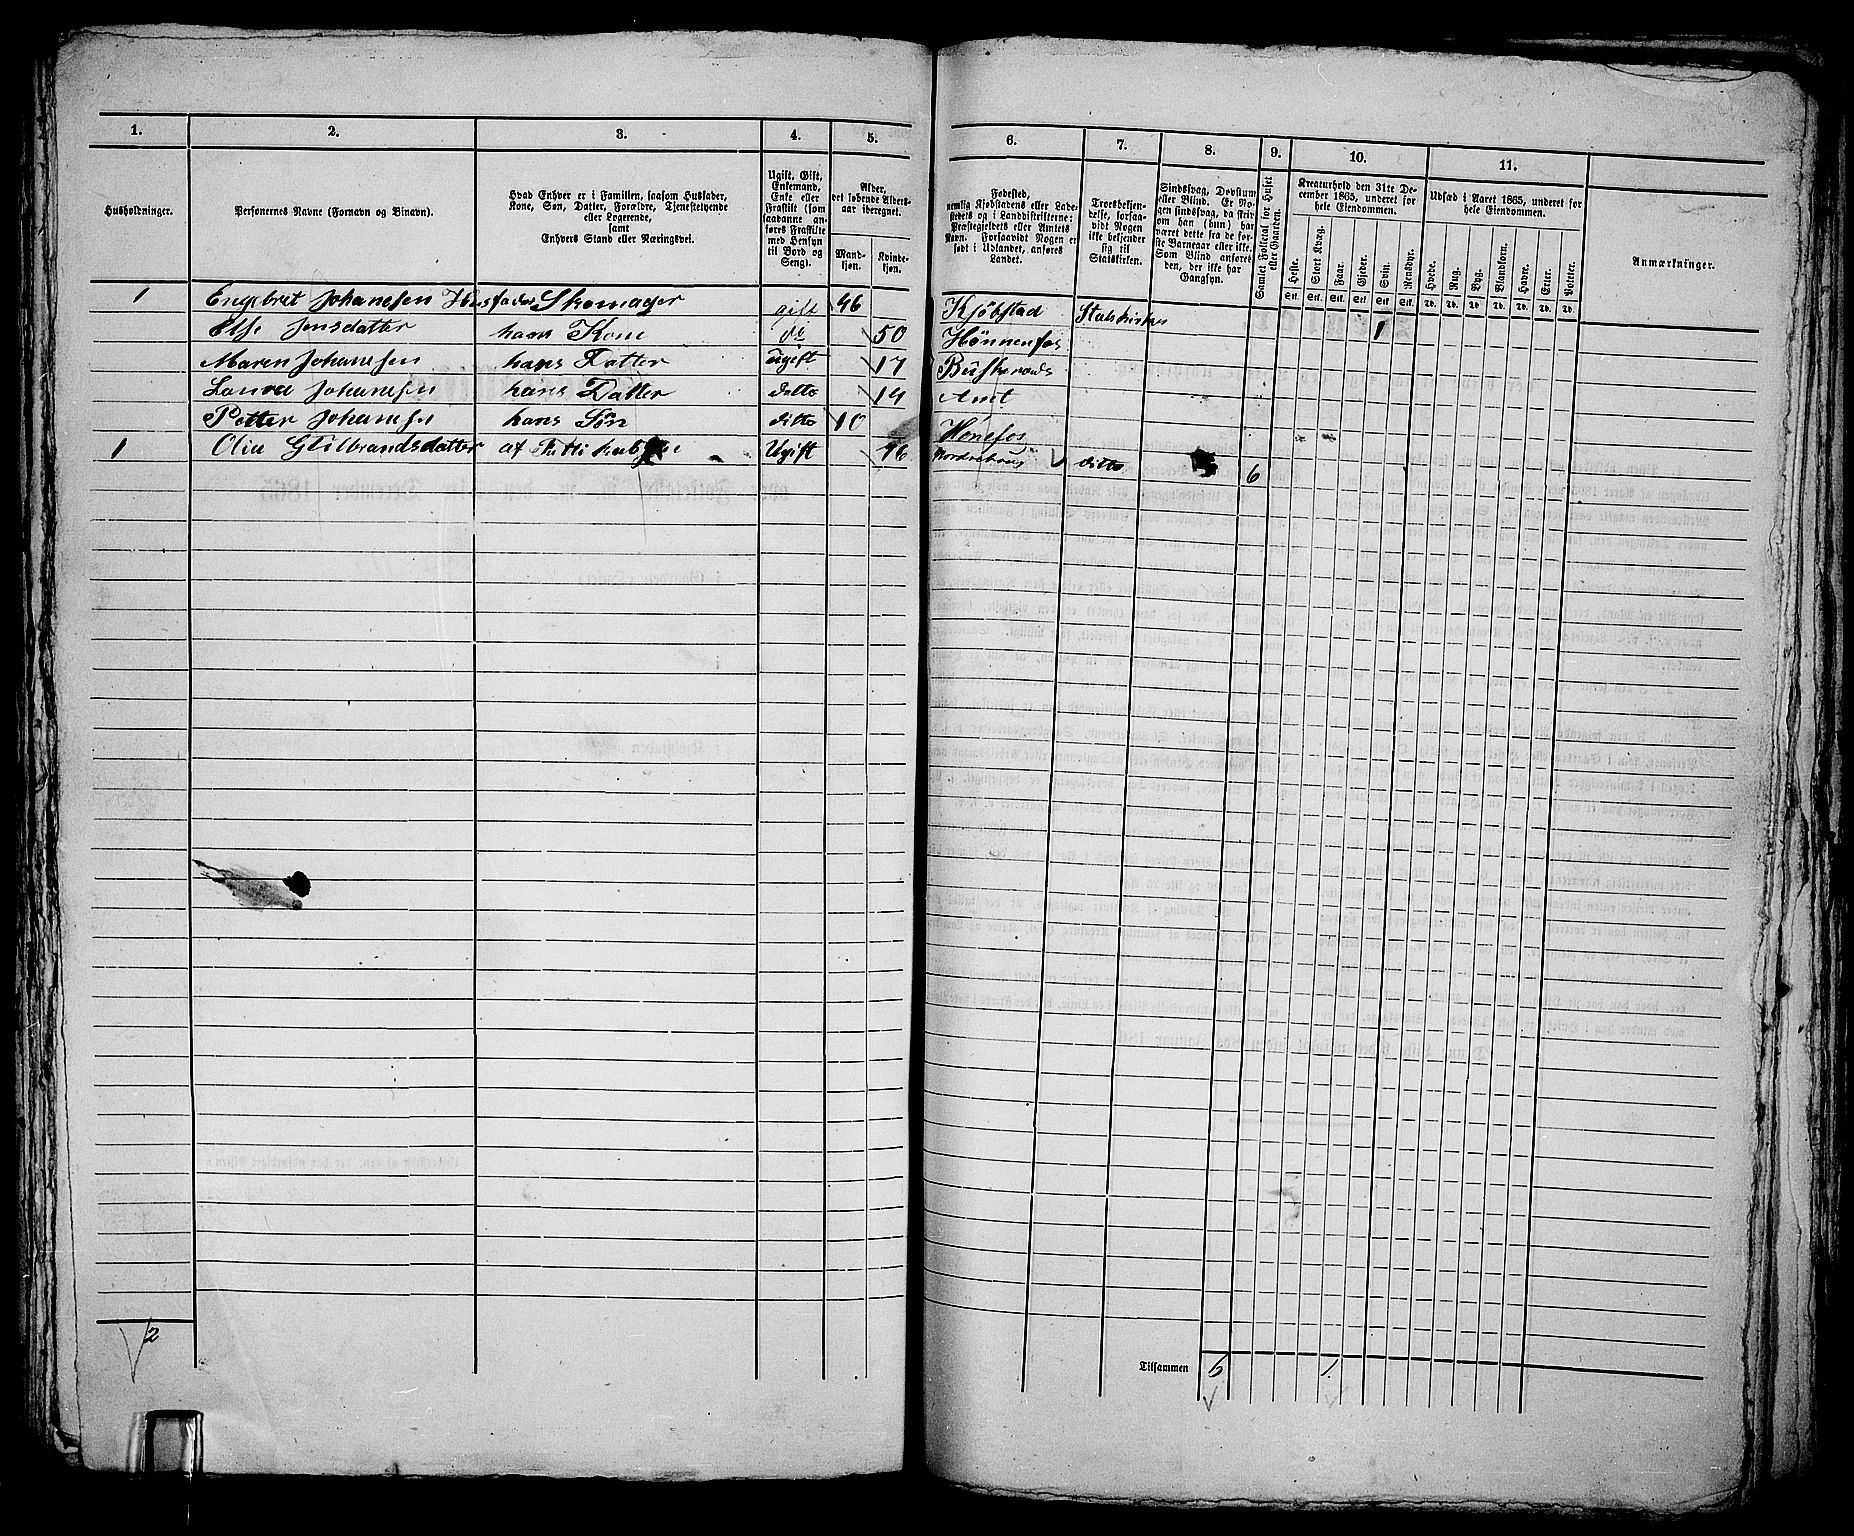 1. 2. 3. 4. 5.
Husholdninger.
Personernes Navne (Fornavn og Binavn).
Hvad Enhver er i Familien, saasom Husfader,
Kone, Søn, Datter, Forældre, Tjenestetyende
eller Logerende,
samt
Enhvers Stand eller Næringsvei.
Ugift, Gift,
Enkemand,
Enke eller
Fraskilt (som
saadanne an-
føres Fraskilte
med Hensyn
til Bord og
Seng).
Alder,
det løbende Alders-
aar iberegnet.
Mand-
kjøn.
Kvinde-
kjøn.
1 Engebret Johanesen Husfader Skomager gift 46
Else Jensdatter hans Kone do 50
Maren Johanesen hans Datter ugift 17
Laura Johanesen hans Datter ditto 14
Petter Johanesen hans Søn ditto 10
1 Olia Gulbrandsdatter af Ugift 76
2
6. 7. 8. 9. 10. 11.
Fødested,
nemlig Kjøbstadens eller Lade-
stedets og i Landdistrikterne:
Præstegjeldets eller Amtets
Navn. Forsaavidt Nogen er
født i Udlandet, anføres
Landet.
Troesbekjen-
delse, forsaa-
vidt Nogen
ikke bekjender
sig til
Statskirken.
Sindssvag, Døvstum
eller Blind. Er No-
gen sindssvag, da skriv
om han (hun) har
været dette fra de før-
ste Barneaar eller ikke.
Som Blind ansøres
den, der ikke har
Gangsyn.
Samlet Folketal for Huset
eller Gaarden.
Kreaturhold den 31te De-
cember 1865, underet for
hele Eiendommen.
Heste. Stort Kvæg. Faar. Gjeder. Svin. Rensdyr.
Stk. Stk. Stk. Stk. Stk. Stk.
Udsæd i Aaret 1865, underet for
hele Eiendommen.
Hvede. Rug. Byg. Blandkorn. Havre. Erter. Poteter.
Td. Td. Td. Td. Td. Td. Td.
Anmærkninger.
Kjöbstad Statskirken
Hönnenfos 1
Buskeruds
Amt
Hönefos
ditto 6
Tilsammen 6 1